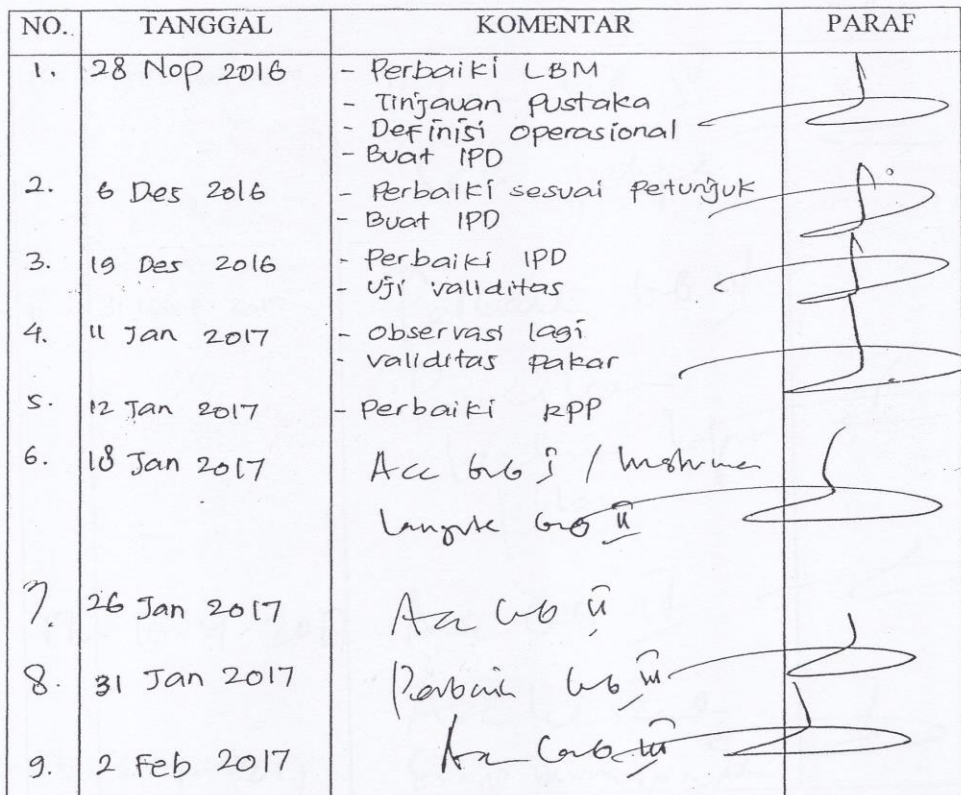 NO. TANGGAL KOMENTAR PARAF
1. 28 Nop 2016 - Perbaiki LBM
- Tinjauan Pustaka
- Definisi operasional
- Buat IPD
2. 6 Des 2016 - Perbaiki sesuai petunjuk
- Buat IPD
3. 19 Des 2016 - Perbaiki IPD
- Uji validitas
4. 11 Jan 2017 - observasi lagi
- validitas pakar
5. 12 Jan 2017 - Perbaiki RPP
6. 18 Jan 2017 Acc bab I /
bab II
7. 26 Jan 2017 Acc bab II
8. 31 Jan 2017 Perbaiki bab III
9. 2 Feb 2017 Acc bab III